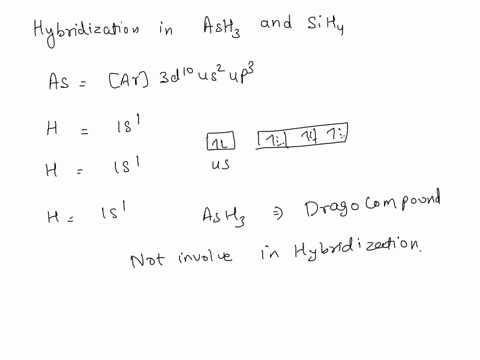 Hybridization in AsH3 and SiH4
As = [Ar] 3d10 4s2 4p3
H = 1S1
H = 1S1
4s
H = 1S1 AsH3 ⇒ Drago Compound
Not involve in Hybridization.